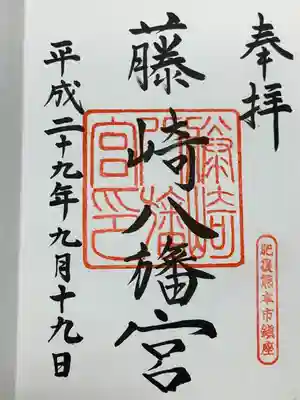 奉拝
藤崎八旛宮
藤崎八旛宮印
肥後熊本市鎮座
平成二十九年九月十九日